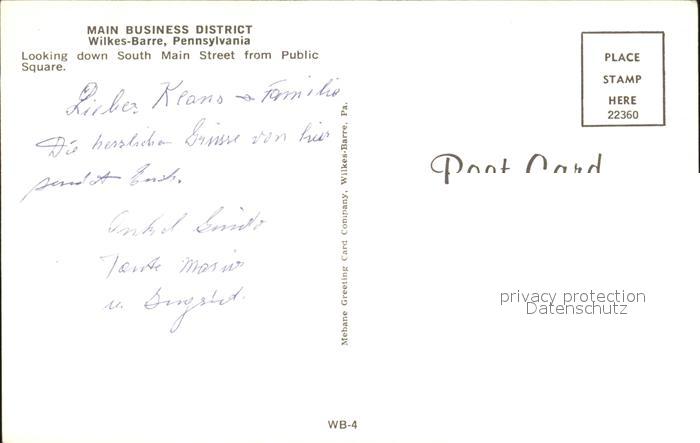 MAIN BUSINESS DISTRICT
Wilkes-Barre, Pennsylvania
Looking down South Main Street from Public
Square.
Lieber Klaus + Familie
Die herzlichen Grüsse von hier
sendet Euch.
Onkel Guido
Tante Maria
u. Ingrid.
Mebane Greeting Card Company, Wilkes-Barre, Pa.
PLACE
STAMP
HERE
22360
Post Card
privacy protection
Datenschutz
WB-4